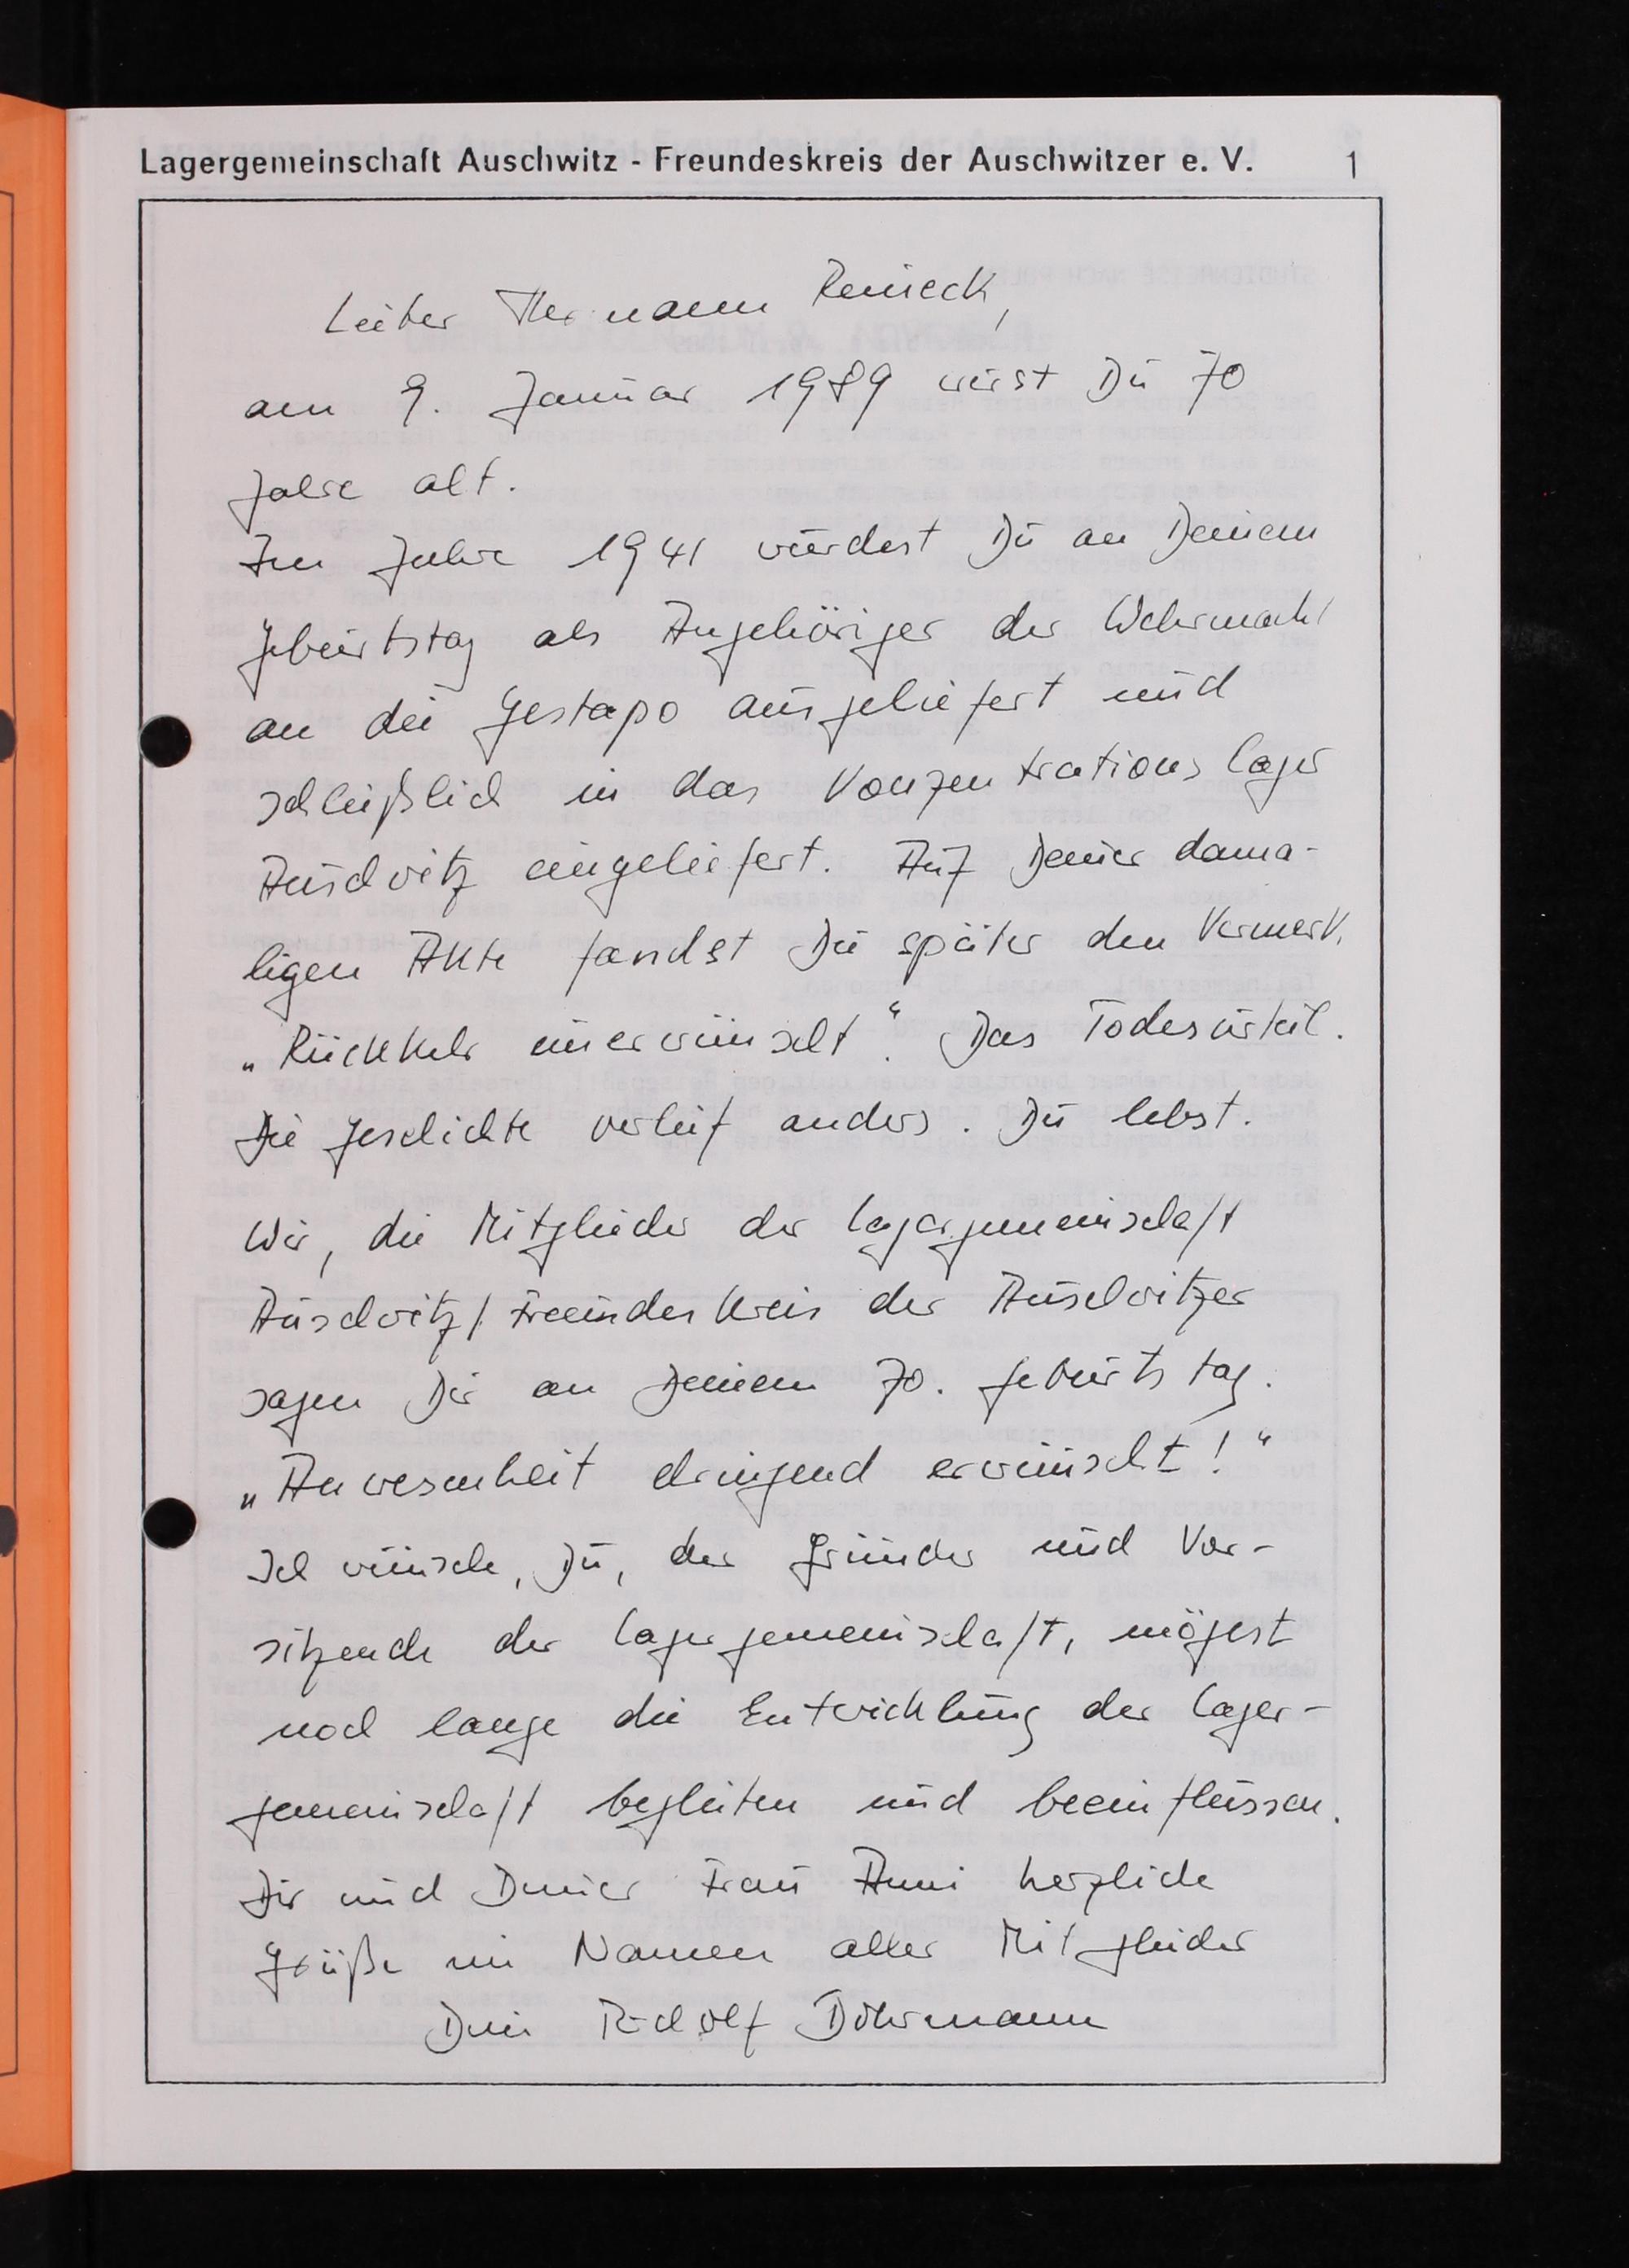 Lagergemeinschaft Auschwitz - Freundeskreis der Auschwitzer e. V. 1
Lieber Hermann Reineck,
am 9. Januar 1989 wirst Du 70
Jahre alt.
Im Jahre 1941 wurdest Du an Deinem
Geburtstag als Angehöriger der Wehrmacht
an die Gestapo ausgeliefert und
schließlich in das Konzentrationslager
Auschwitz eingeliefert. Auf Deiner dama-
ligen Akte fandst Du später den Vermerk
„Rückkehr unerwünscht“. Das Todesurteil.
Die Geschichte verlief anders. Du lebst.
Wir, die Mitglieder der Lagergemeinschaft
Auschwitz/Freundeskreis der Auschwitzer
sagen Dir an Deinem 70. Geburtstag.
„Anwesenheit dringend erwünscht!“
Ich wünsche, Du, der Gründer und Vor-
sitzende der Lagergemeinschaft, mögest
noch lange die Entwicklung der Lager-
gemeinschaft begleiten und beeinflussen.
Dir und Deiner Frau Anni herzliche
Grüße im Namen aller Mitglieder
Dein Rudolf Dohrmann